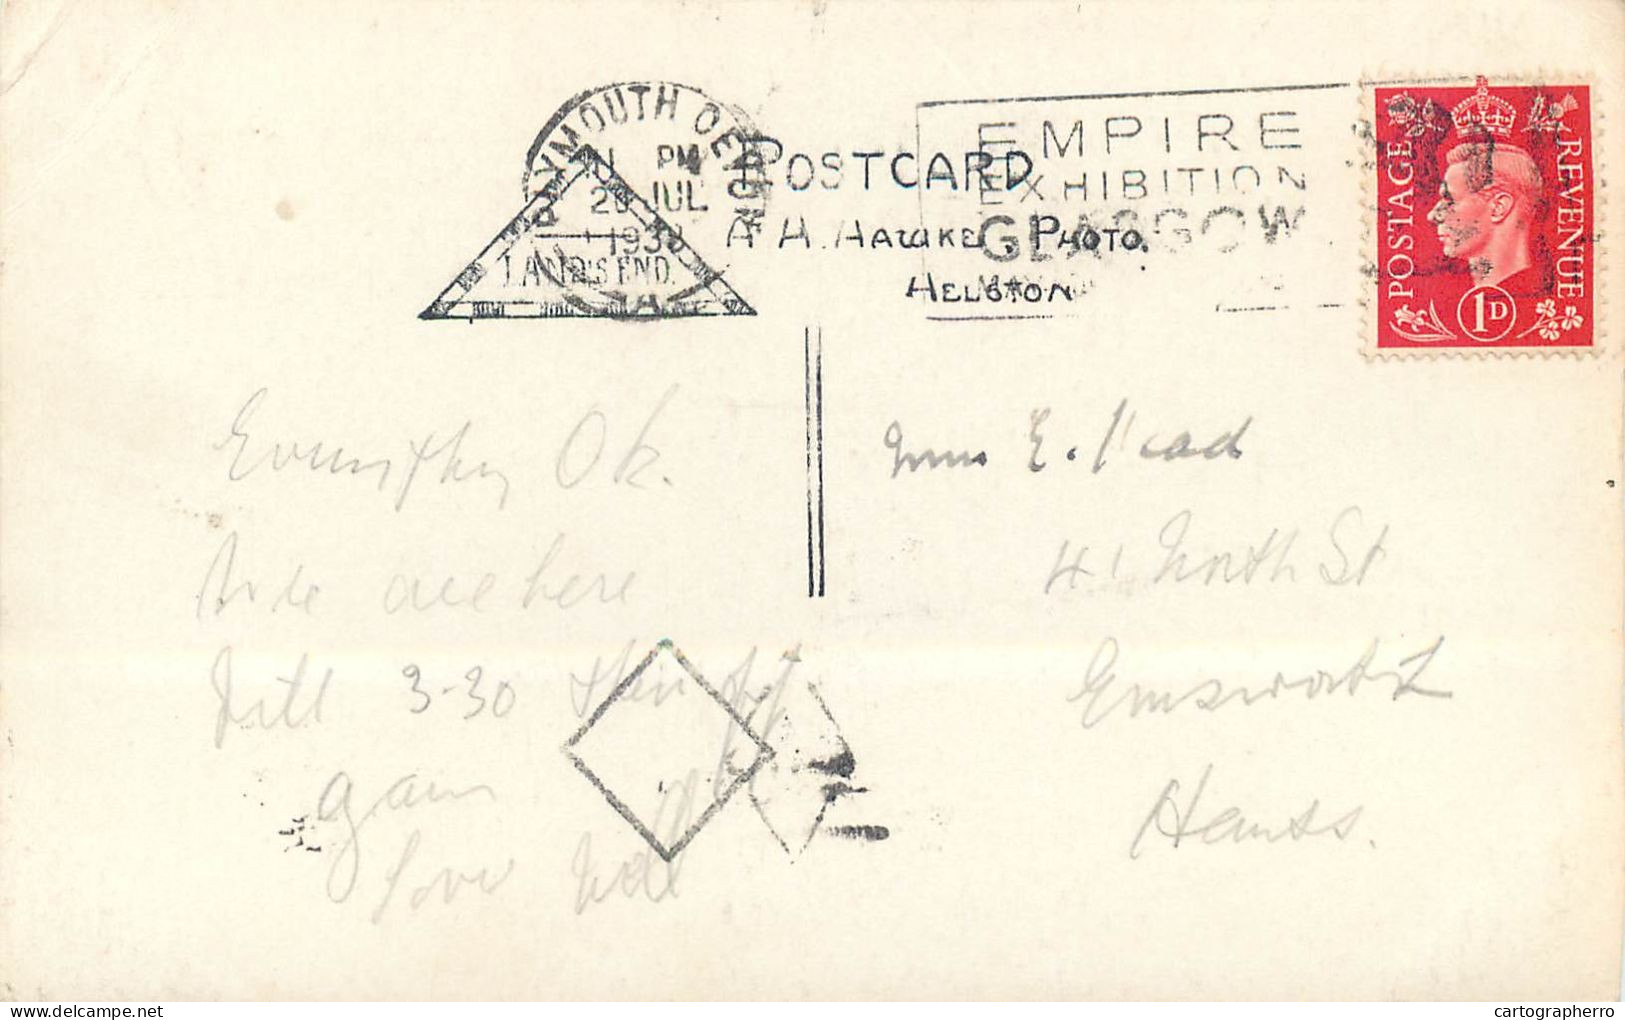 PLYMOUTH DEVON
PM
20 JUL
1938
LAND'S END.
POSTCARD
A H. HAWKE, PHOTO.
HELSTON
EMPIRE
EXHIBITION
GLASGOW
MAY
POSTAGE
REVENUE
1D
Ok.
are here
till 3-30 then off
again
love
E. Head
41 North St
Emsworth
Hants.
cartographerro